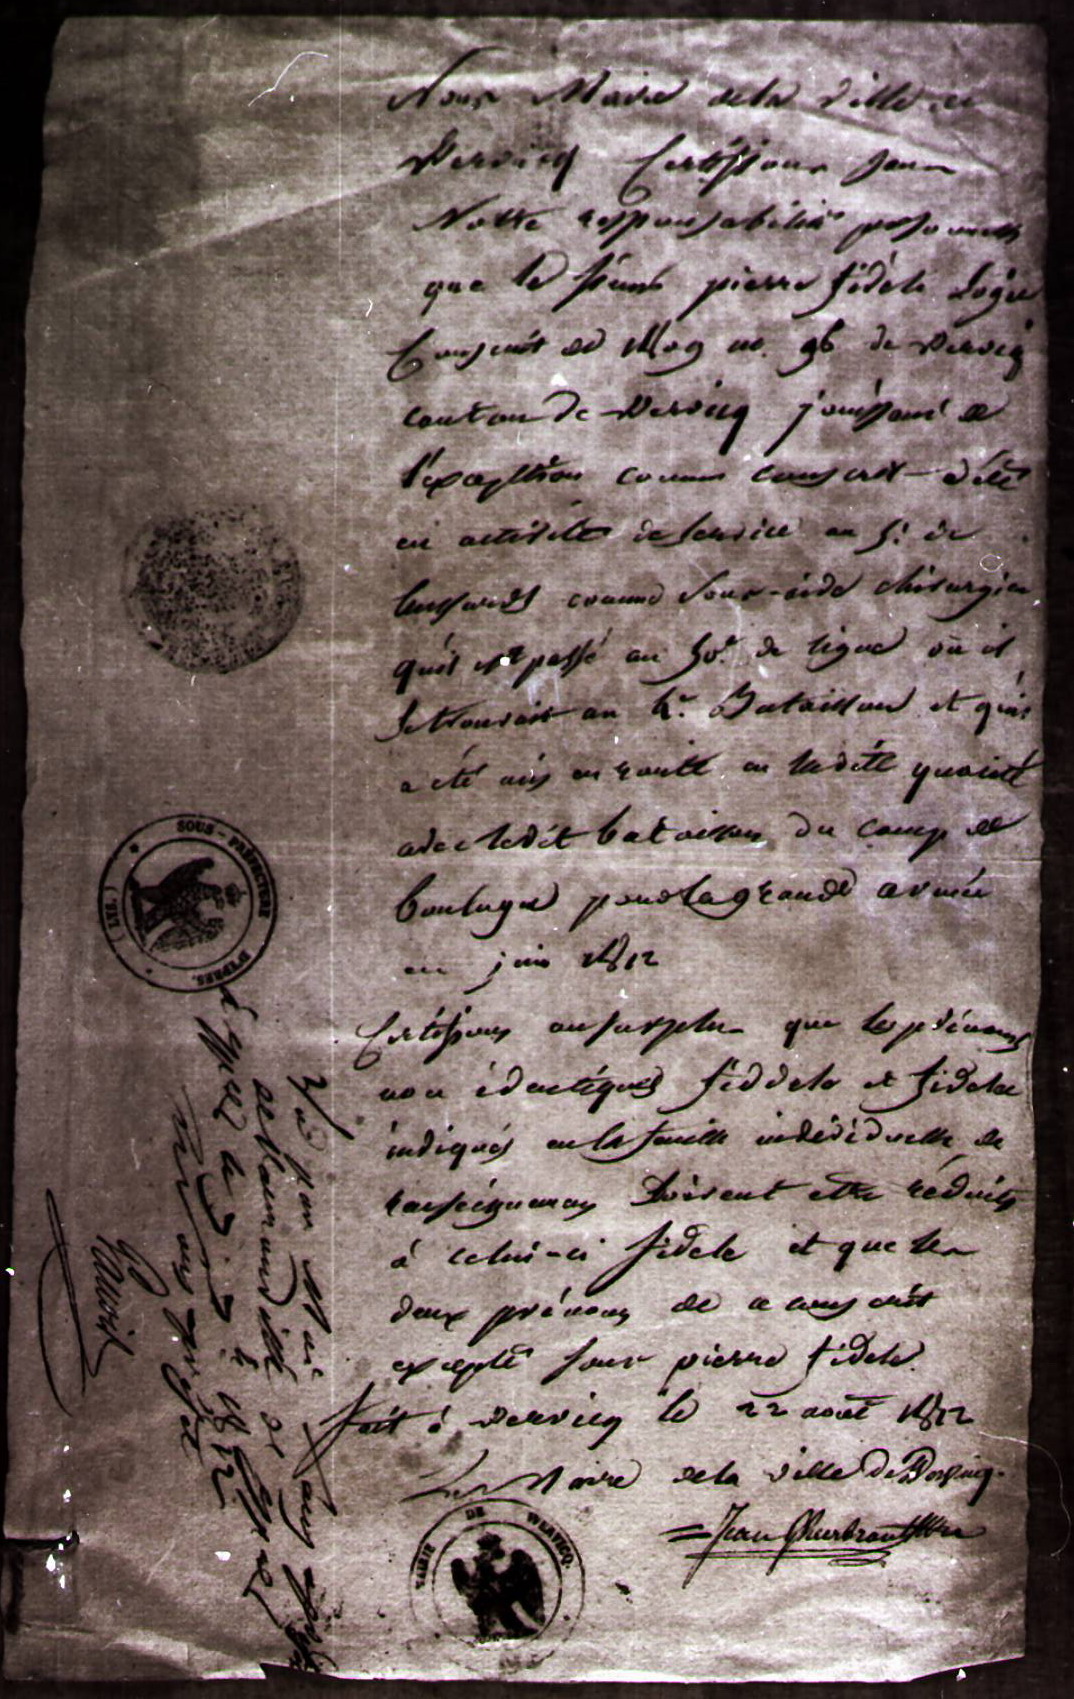 Nous Maire de la Ville de
Wervicq Certifions sous
Notre responsabilité personnelle
que le pierre fidèle Logie
Conscrit de 1809 no. 96 de Wervicq
canton de Wervicq jouissant de
l'exception comme conscrit
en activité de service au 5e de
hussards comme sous-aide chirurgien
qu'il est passé au 50e de ligne où il
se trouvait au 4e Bataillon et qu'il
a été mis en route en
avec ledit bataillon du camp de
boulogne pour la grande armée
en juin 1812
Certifions au surplus que les prénoms
non identiques fiddele et fidele
indiqués en la feuille individuelle de
doivent etre réduits
à celui-ci fidele et que les
deux prénoms de ce conscrit
excepté sont pierre fidele.
fait à Wervicq le 22 août 1812
Le Maire de la ville de Wervicq.
Jean
MAIRIE DE WERVICQ.
SOUS-PRÉFECTURE D'YPRES. (LYS.)
Vu par Nous
de l'arrondissement d'Ypres
à Ypres le 1812